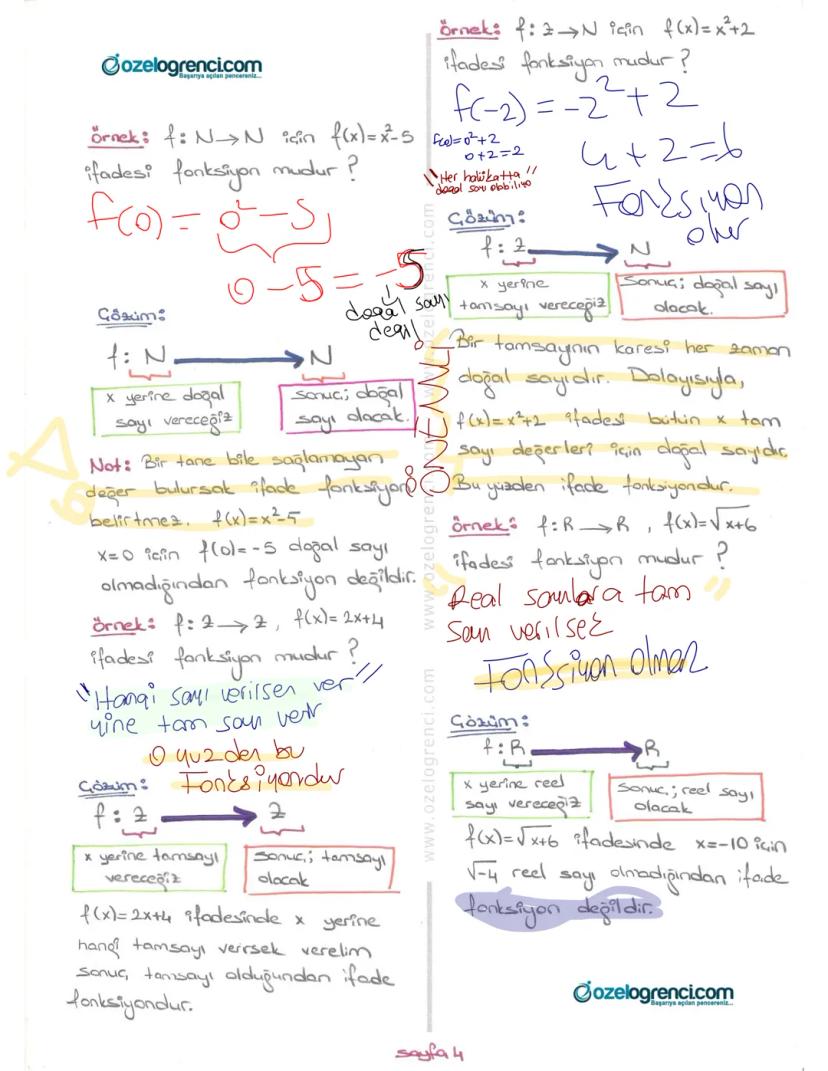 ozelogrenci.com
Başarıya açılan pencereniz...
örnek: f: N→N için f(x)=x²-5
ifadesi fonksiyon mudur ?
f(0) = 0²-5
0-5 = -5
doğal sayı
değil
Çözüm:
f: N → N
x yerine doğal
sayı vereceğiz
sonuç; doğal
sayı olacak.
Not: Bir tane bile sağlamayan
değer bulursak ifade fonksiyon
belirtmez. f(x)=x²-5
x=0 için f(0)=-5 doğal sayı
olmadığından fonksiyon değildir.
örnek: f: Z→Z, f(x)= 2x+4
ifadesi fonksiyon mudur ?
"Hangi sayı verilsen ver"
yine tam sayı verir
O yüzden bu
Fonksiyondur
Çözüm:
f: Z → Z
x yerine tamsayı
vereceğiz
sonuç; tamsayı
olacak
f(x)=2x+4 ifadesinde x yerine
hangi tamsayı verirsek verelim
sonuç tamsayı olduğundan ifade
fonksiyondur.
örnek: f: Z→N için f(x)=x²+2
ifadesi fonksiyon mudur ?
f(-2) = -2²+2
f(0)=0²+2
0+2=2
4+2=6
"Her
doğal sayı
Fonksiyon
olur
Çözüm:
f: Z → N
x yerine
tamsayı vereceğiz
sonuç; doğal sayı
olacak.
ÖNEMNLİ
Bir tamsayının karesi her zaman
doğal sayıdır. Dolayısıyla,
f(x)=x²+2 ifadesi bütün x tam
sayı değerleri için doğal sayıdır.
Bu yüzden ifade fonksiyondur.
örnek: f:R→R , f(x)=√x+6
ifadesi fonksiyon mudur ?
Real sayılara tam
sayı verilsee
Fonksiyon olmaz
Çözüm:
f:R → R
x yerine reel
sayı vereceğiz
sonuç; reel sayı
olacak
f(x)=√x+6 ifadesinde x=-10 için
√-4 reel sayı olmadığından ifade
fonksiyon değildir.
ozelogrenci.com
Başarıya açılan pencereniz...
www.ozelogrenci.com www.ozelogrenci.com
sayfa 4